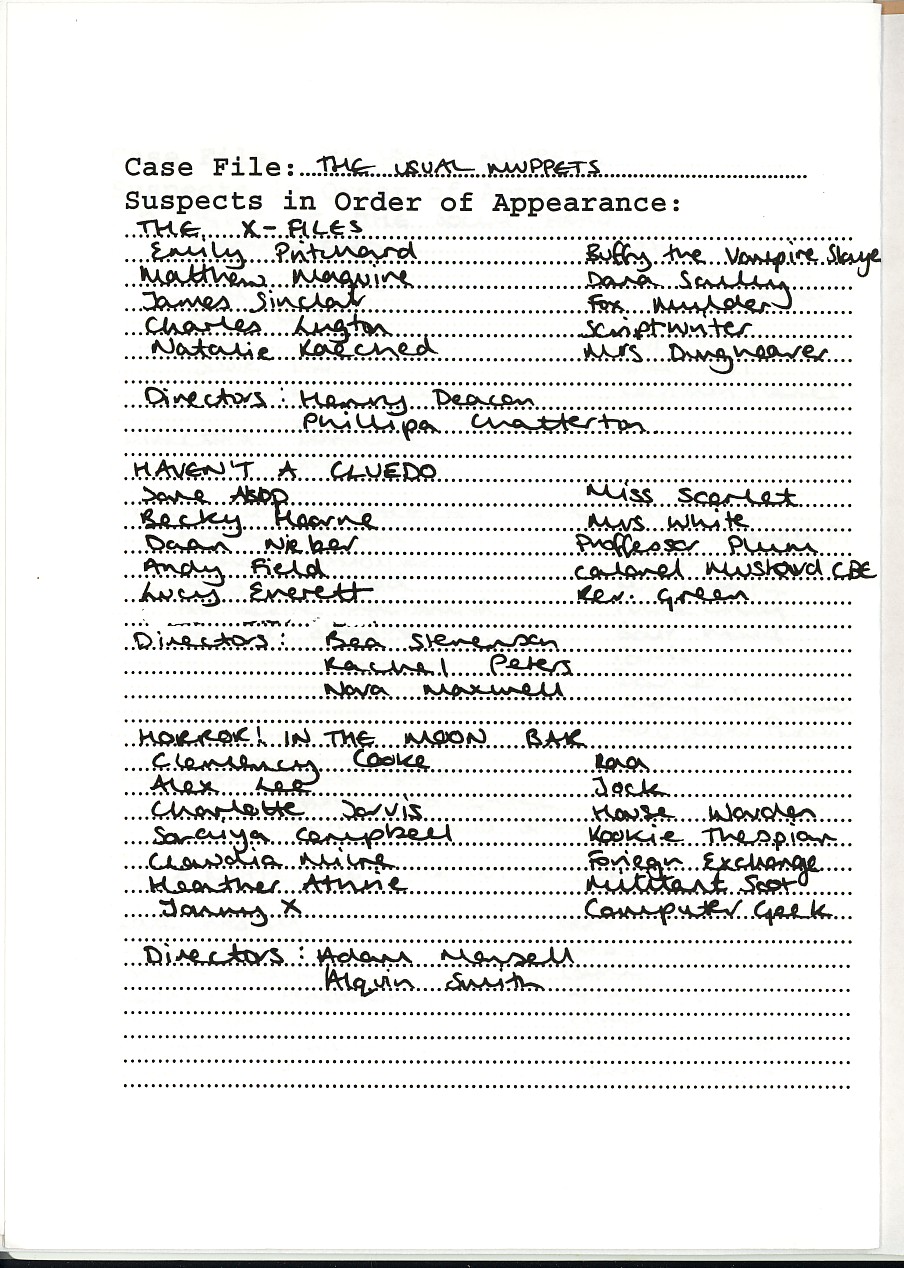 Case File: THE USUAL MUPPETS
Suspects in Order of Appearance:
THE X-FILES
Emily Pritchard Buffy the Vampire Slaye
Matthew Maguire Dana Sculley
James Sinclair Fox Mulder
Charles Lugton ScriptWriter
Natalie Kaeched Mrs Dungheaver
Directors: Henny Deacon
Phillipa Chatterton
HAVEN'T A CLUEDO
Jane Miss Scarlet
Becky Hearne Mrs White
Daan Nieber Proffessor Plum
Andy Field Colonel Mustard CBE
Lucy Everett Rev. Green
Directors: Bea Stevenson
Rachel Peters
Nova Maxwell
HORROR! IN THE MOON BAR
Clemency Cooke Raa
Alex Lee Jock
Charlotte Jarvis House Warden
Soraya Campbell Kookie Thespian
Claudia Milne Foriegn Exchange
Heather Militant Scot
Jonny X Computer Geek
Directors: Adam Mansell
Alquin Smith